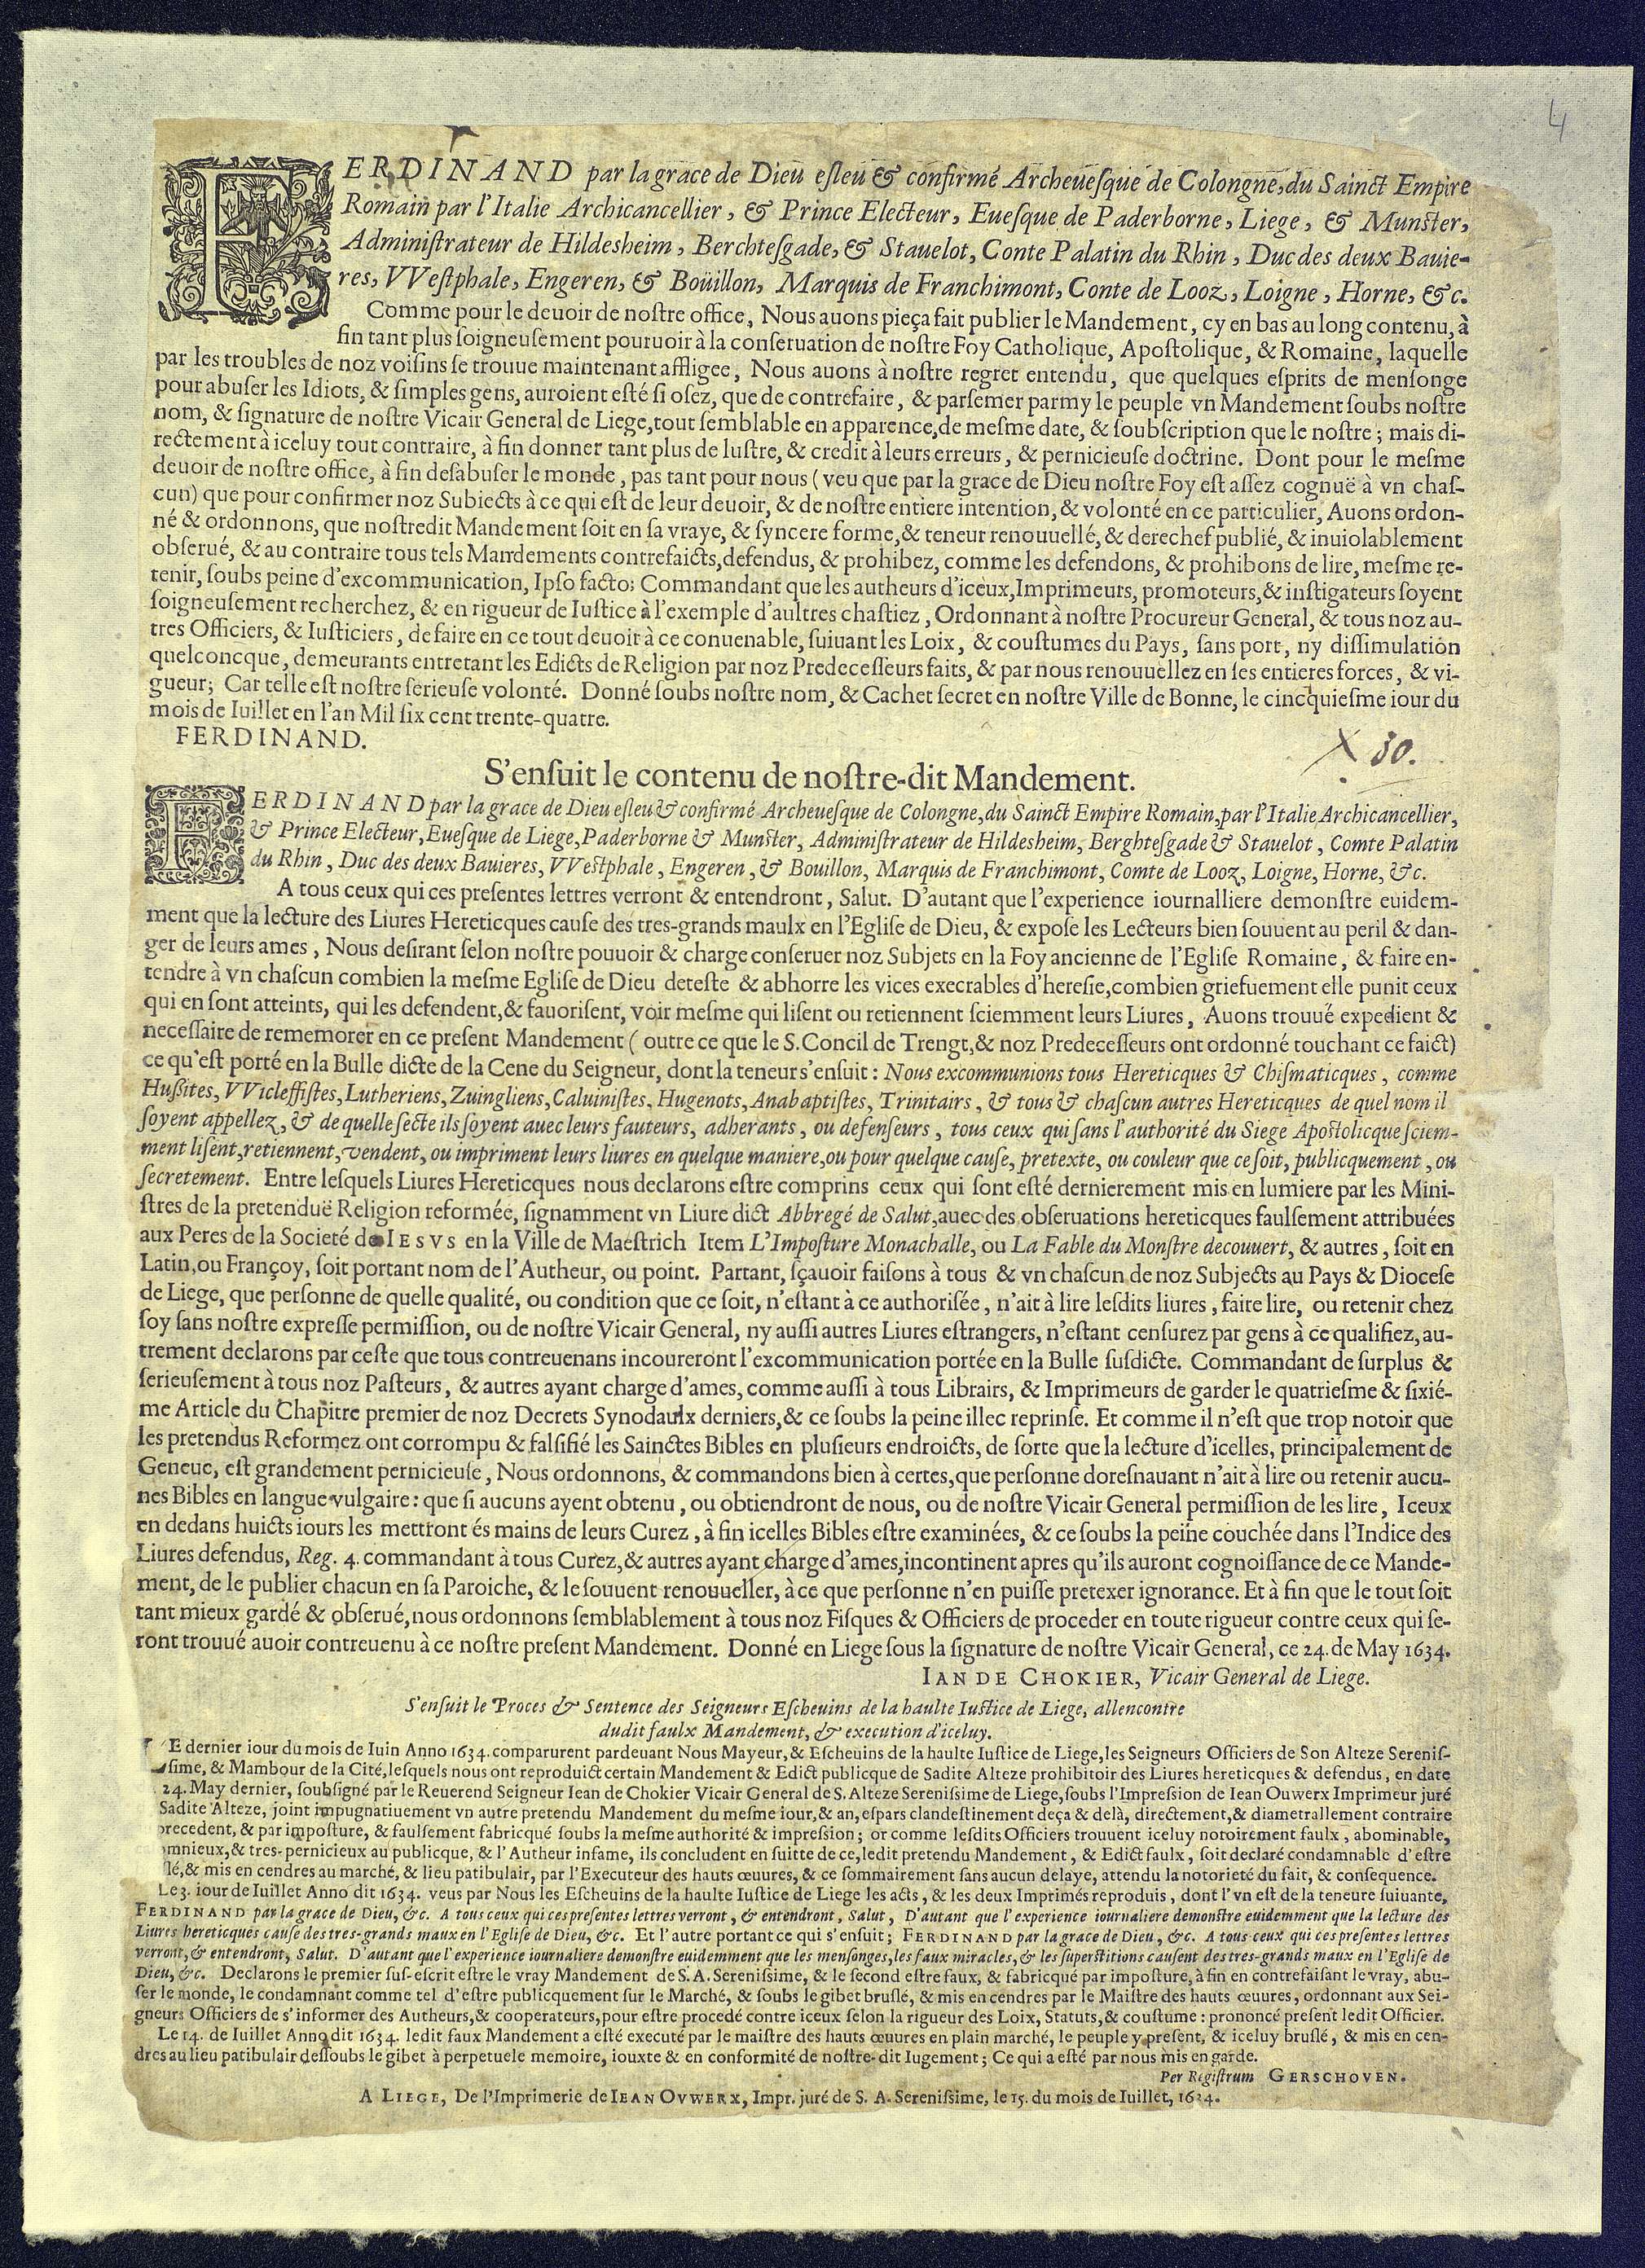 4
FERDINAND par la grace de Dieu esleu & confirmé Archeuesque de Colongne, du Sainct Empire
Romain par l'Italie Archicancellier, & Prince Electeur, Euesque de Paderborne, Liege, & Munster,
Administrateur de Hildesheim, Berchtesgade, & Stauelot, Conte Palatin du Rhin, Duc des deux Bauie-
res, VVestphale, Engeren, & Boüillon, Marquis de Franchimont, Conte de Looz, Loigne, Horne, &c.
Comme pour le deuoir de nostre office, Nous auons pieça fait publier le Mandement, cy en bas au long contenu, à
fin tant plus soigneusement pouruoir à la conseruation de nostre Foy Catholique, Apostolique, & Romaine, laquelle
par les troubles de noz voisins se trouue maintenant affligee, Nous auons à nostre regret entendu, que quelques esprits de mensonge
pour abuser les Idiots, & simples gens, auroient esté si osez, que de contrefaire, & parsemer parmy le peuple vn Mandement soubs nostre
nom, & signature de nostre Vicair General de Liege, tout semblable en apparence, de mesme date, & soubscription que le nostre; mais di-
rectement à iceluy tout contraire, à fin donner tant plus de lustre, & credit à leurs erreurs, & pernicieuse doctrine. Dont pour le mesme
deuoir de nostre office, à fin desabuser le monde, pas tant pour nous (veu que par la grace de Dieu nostre Foy est assez cognuë à vn chas-
cun) que pour confirmer noz Subiects à ce qui est de leur deuoir, & de nostre entiere intention, & volonté en ce particulier, Auons ordon-
né & ordonnons, que nostredit Mandement soit en sa vraye, & syncere forme, & teneur renouuellé, & derechef publié, & inuiolablement
obserué, & au contraire tous tels Mandements contrefaicts, defendus, & prohibez, comme les defendons, & prohibons de lire, mesme re-
tenir, soubs peine d'excommunication, Ipso facto; Commandant que les autheurs d'iceux, Imprimeurs, promoteurs, & instigateurs soyent
soigneusement recherchez, & en rigueur de Iustice à l'exemple d'aultres chastiez, Ordonnant à nostre Procureur General, & tous noz au-
tres Officiers, & Iusticiers, de faire en ce tout deuoir à ce conuenable, suiuant les Loix, & coustumes du Pays, sans port, ny dissimulation
quelconcque, demeurants entretant les Edicts de Religion par noz Predecesseurs faits, & par nous renouuellez en ses entieres forces, & vi-
gueur; Car telle est nostre serieuse volonté. Donné soubs nostre nom, & Cachet secret en nostre Ville de Bonne, le cincquiesme iour du
mois de Iuillet en l'an Mil six cent trente-quatre.
FERDINAND.
X 30.
S'ensuit le contenu de nostre-dit Mandement.
FERDINAND par la grace de Dieu esleu & confirmé Archeuesque de Colongne, du Sainct Empire Romain, par l'Italie Archicancellier,
& Prince Electeur, Euesque de Liege, Paderborne & Munster, Administrateur de Hildesheim, Berghtesgade & Stauelot, Comte Palatin
du Rhin, Duc des deux Bauieres, VVestphale, Engeren, & Bouillon, Marquis de Franchimont, Comte de Looz, Loigne, Horne, &c.
A tous ceux qui ces presentes lettres verront & entendront, Salut. D'autant que l'experience iournalliere demonstre euidem-
ment que la lecture des Liures Hereticques cause des tres-grands maulx en l'Eglise de Dieu, & expose les Lecteurs bien souuent au peril & dan-
ger de leurs ames, Nous desirant selon nostre pouuoir & charge conseruer noz Subjets en la Foy ancienne de l'Eglise Romaine, & faire en-
tendre à vn chascun combien la mesme Eglise de Dieu deteste & abhorre les vices execrables d'heresie, combien griefuement elle punit ceux
qui en sont atteints, qui les defendent, & fauorisent, voir mesme qui lisent ou retiennent sciemment leurs Liures, Auons trouué expedient &
necessaire de rememorer en ce present Mandement (outre ce que le S. Concil de Trengt, & noz Predecesseurs ont ordonné touchant ce faict)
ce qu'est porté en la Bulle dicte de la Cene du Seigneur, dont la teneur s'ensuit: Nous excommunions tous Hereticques & Chismaticques, comme
Hussites, VVicleffistes, Lutheriens, Zuingliens, Caluinistes, Hugenots, Anabaptistes, Trinitairs, & tous & chascun autres Hereticques de quel nom il
soyent appellez, & de quelle secte ils soyent auec leurs fauteurs, adherants, ou defenseurs, tous ceux qui sans l'authorité du Siege Apostolicque sciem-
ment lisent, retiennent, vendent, ou impriment leurs liures en quelque maniere, ou pour quelque cause, pretexte, ou couleur que ce soit, publicquement, ou
secretement. Entre lesquels Liures Hereticques nous declarons estre comprins ceux qui sont esté dernierement mis en lumiere par les Mini-
stres de la pretenduë Religion reformée, signamment vn Liure dict Abbregé de Salut, auec des obseruations hereticques faulsement attribuées
aux Peres de la Societé de IESVS en la Ville de Maestrich Item L'Imposture Monachalle, ou La Fable du Monstre decouuert, & autres, soit en
Latin, ou Françoy, soit portant nom de l'Autheur, ou point. Partant, sçauoir faisons à tous & vn chascun de noz Subjects au Pays & Diocese
de Liege, que personne de quelle qualité, ou condition que ce soit, n'estant à ce authorisée, n'ait à lire lesdits liures, faire lire, ou retenir chez
soy sans nostre expresse permission, ou de nostre Vicair General, ny aussi autres Liures estrangers, n'estant censurez par gens à ce qualifiez, au-
trement declarons par ceste que tous contreuenans incoureront l'excommunication portée en la Bulle susdicte. Commandant de surplus &
serieusement à tous noz Pasteurs, & autres ayant charge d'ames, comme aussi à tous Librairs, & Imprimeurs de garder le quatriesme & sixié-
me Article du Chapitre premier de noz Decrets Synodaulx derniers, & ce soubs la peine illec reprinse. Et comme il n'est que trop notoir que
les pretendus Reformez ont corrompu & falsifié les Sainctes Bibles en plusieurs endroicts, de sorte que la lecture d'icelles, principalement de
Geneue, est grandement pernicieuse, Nous ordonnons, & commandons bien à certes, que personne doresnauant n'ait à lire ou retenir aucu-
nes Bibles en langue vulgaire: que si aucuns ayent obtenu, ou obtiendront de nous, ou de nostre Vicair General permission de les lire, Iceux
en dedans huicts iours les mettront és mains de leurs Curez, à fin icelles Bibles estre examinées, & ce soubs la peine couchée dans l'Indice des
Liures defendus, Reg. 4. commandant à tous Curez, & autres ayant charge d'ames, incontinent apres qu'ils auront cognoissance de ce Mande-
ment, de le publier chacun en sa Paroiche, & le souuent renouueller, à ce que personne n'en puisse pretexer ignorance. Et à fin que le tout soit
tant mieux gardé & obserué, nous ordonnons semblablement à tous noz Fisques & Officiers de proceder en toute rigueur contre ceux qui se-
ront trouué auoir contreuenu à ce nostre present Mandement. Donné en Liege sous la signature de nostre Vicair General, ce 24. de May 1634.
IAN DE CHOKIER, Vicair General de Liege.
S'ensuit le Proces & Sentence des Seigneurs Escheuins de la haulte Iustice de Liege, allencontre
dudit faulx Mandement, & execution d'iceluy.
LE dernier iour du mois de Iuin Anno 1634. comparurent pardeuant Nous Mayeur, & Escheuins de la haulte Iustice de Liege, les Seigneurs Officiers de Son Alteze Serenis-
sime, & Mambour de la Cité, lesquels nous ont reproduict certain Mandement & Edict publicque de Sadite Alteze prohibitoir des Liures hereticques & defendus, en date
24. May dernier, soubsigné par le Reuerend Seigneur Iean de Chokier Vicair General de S. Alteze Serenissime de Liege, soubs l'Impression de Iean Ouwerx Imprimeur juré
Sadite Alteze, joint impugnatiuement vn autre pretendu Mandement du mesme iour, & an, espars clandestinement deça & delà, directement, & diametrallement contraire
precedent, & par imposture, & faulsement fabricqué soubs la mesme authorité & impression; or comme lesdits Officiers trouuent iceluy notoirement faulx, abominable,
omnieux, & tres-pernicieux au publicque, & l'Autheur infame, ils concludent en suitte de ce, ledit pretendu Mandement, & Edict faulx, soit declaré condamnable d'estre
lé, & mis en cendres au marché, & lieu patibulair, par l'Executeur des hauts œuures, & ce sommairement sans aucun delaye, attendu la notorieté du fait, & consequence.
Le 3. iour de Iuillet Anno dit 1634. veus par Nous les Escheuins de la haulte Iustice de Liege les acts, & les deux Imprimés reproduis, dont l'vn est de la teneure suiuante,
FERDINAND par la grace de Dieu, &c. A tous ceux qui ces presentes lettres verront, & entendront, Salut, D'autant que l'experience iournaliere demonstre euidemment que la lecture des
Liures hereticques cause des tres-grands maux en l'Eglise de Dieu, &c. Et l'autre portant ce qui s'ensuit; FERDINAND par la grace de Dieu, &c. A tous ceux qui ces presentes lettres
verront, & entendront, Salut. D'autant que l'experience iournaliere demonstre euidemment que les mensonges, les faux miracles, & les superstitions causent des tres-grands maux en l'Eglise de
Dieu, &c. Declarons le premier sus-escrit estre le vray Mandement de S. A. Serenissime, & le second estre faux, & fabricqué par imposture, à fin en contrefaisant le vray, abu-
ser le monde, le condamnant comme tel d'estre publicquement sur le Marché, & soubs le gibet bruslé, & mis en cendres par le Maistre des hauts œuures, ordonnant aux Sei-
gneurs Officiers de s'informer des Autheurs, & cooperateurs, pour estre procedé contre iceux selon la rigueur des Loix, Statuts, & coustume: prononcé present ledit Officier.
Le 14. de Iuillet Anno dit 1634. ledit faux Mandement a esté executé par le maistre des hauts œuures en plain marché, le peuple y present, & iceluy bruslé, & mis en cen-
dres au lieu patibulair dessoubs le gibet à perpetuele memoire, iouxte & en conformité de nostre-dit Iugement; Ce qui a esté par nous mis en garde.
Per Registrum GERSCHOVEN.
A LIEGE, De l'Imprimerie de IEAN OVWERX, Impr. juré de S. A. Serenissime, le 15. du mois de Iuillet, 1634.